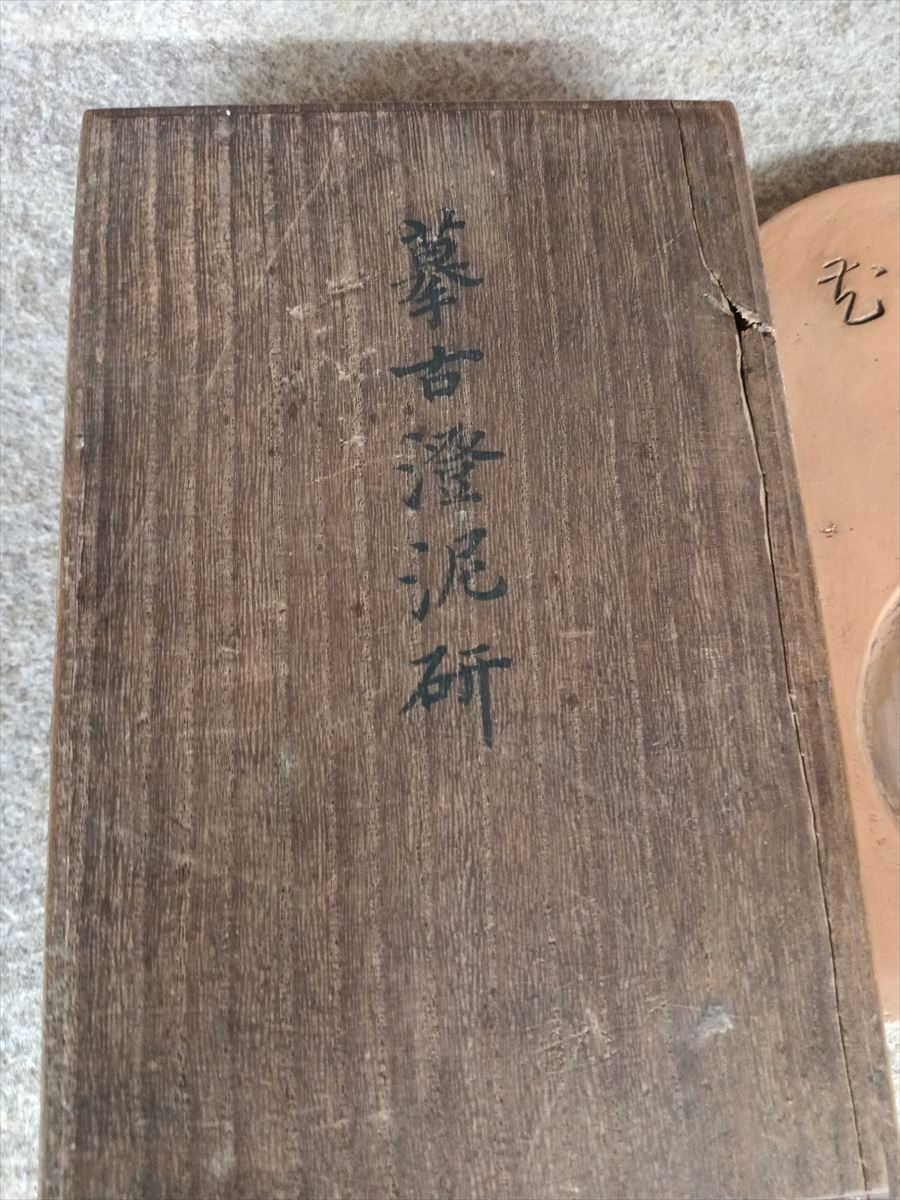 摹古澄泥硏